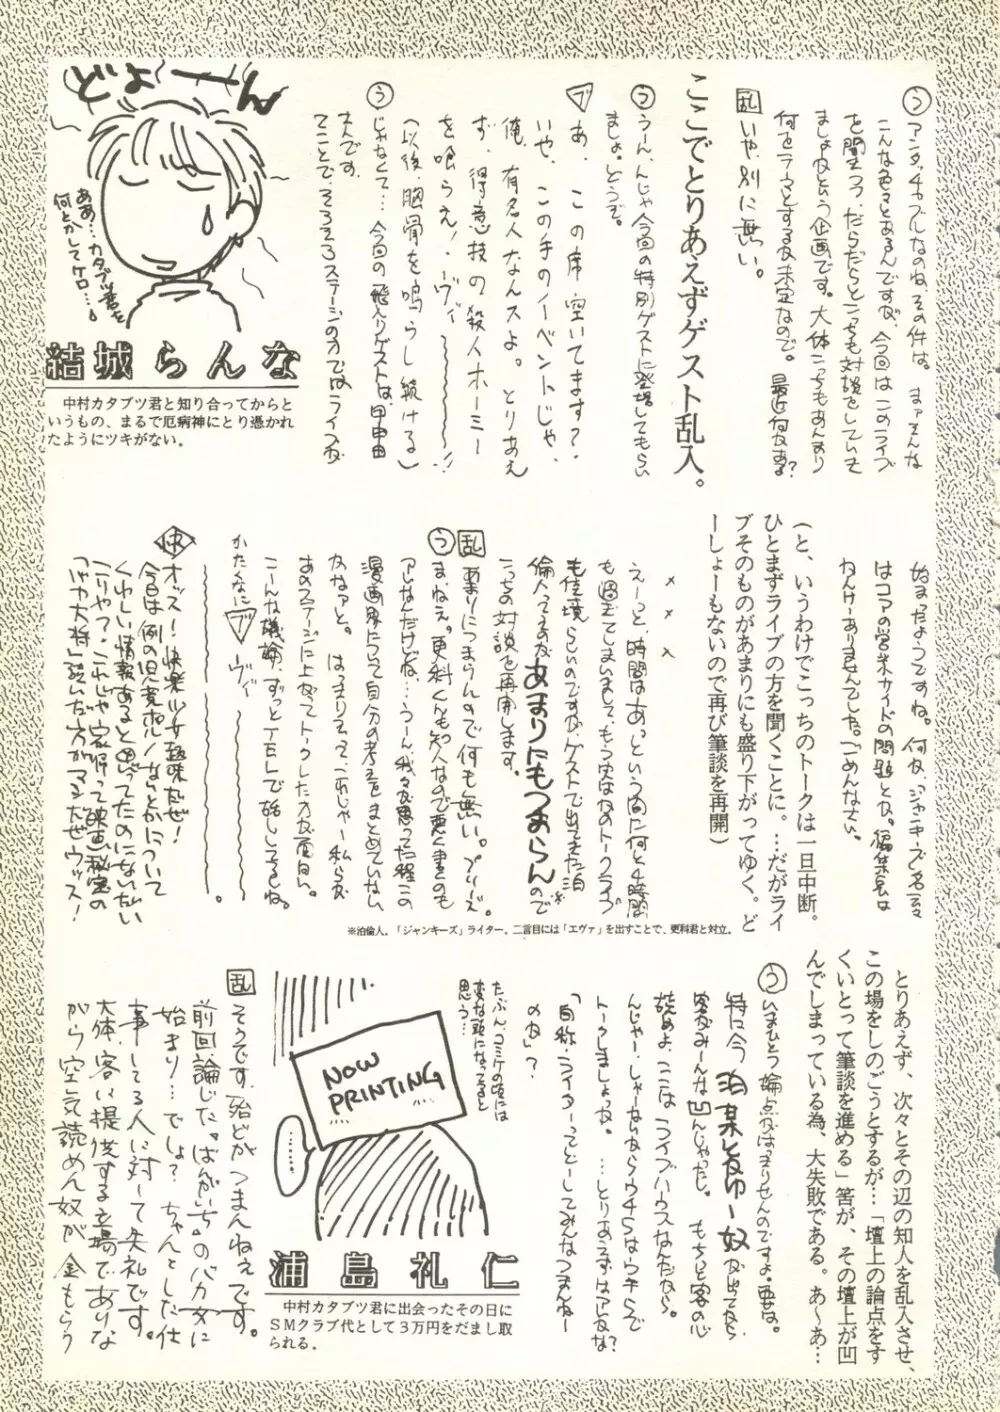 う アンタッチャブルなのね、その件は。まァそんな
こんな色々とあるんですが、今回はこのライブ
を聞きつつ、だらだらとこっちも対談をしていき
ましょうという企画です。大体こっちもあんまり
何をテーマとするか未定なので。最近何かある?
乱 いや、別に無い。
ここでとりあえずゲスト乱入。
う うーん、んじゃ今回の特別ゲストに登場してもらい
ましょ。どうぞ。
ブ あ、この席空いてます?
いや、この手のイベントじゃ、
俺、有名人なんスよ。とりあえ
ず、得意技の殺人ホーミー
を喰らえ!ヴィ〜〜〜!!
(以後、胸骨を鳴らし続ける)
う じゃなくて…今回の飛入りゲストは、甲冑
さんです。
てことで、そろそろステージの方ではライブが
どよーん
ああ…カタブツ君を
何とかしてケロ…。
結城らんな
中村カタブツ君と知り合ってからと
いうもの、まるで厄病神にとり憑かれ
たようにツキがない。
始まったようですね。何か、ジャンキーズ名云々
はコアの営業サイドの問題とか。編集長は
かんけーありませんでした。ごめんなさい。
(と、いうわけでこっちのトークは一旦中断。
ひとまずライブの方を聞くことに。…だがライ
ブそのものがあまりにも盛り下がってゆく。ど
ーしょーもないので再び筆談を再開)
× × ×
えーっと、時間はあっという間に何と4時間
も過ぎてしまいまして、もうなかなかのトークライブ
も佳境らしいのですが、ゲストで出てきた泊
倫人ってのがあまりにもつまらんので※
こっちの対談を再開します。
乱 あまりにつまらんので何も無い。プリーズ。
う まねえ。更科くんも知人なので悪く書くのも
アレなんだけどね…うーん、我々が思ってた程この
漫画界について自分の考えをまとめていない
かなァと。はっきりいって、これじゃー私らが
あのステージに上がってトークした方が面白い。
こーんな議論、ずっとTELで話してるしね。
かたくなに ブ ヴィ
〜〜〜。
快 オッス!快楽少女趣味だぜ!
今日は例の児童ポルノなんとかについて
くわしい情報あると思ってたのにないたい
こりゃマ・これじゃ家帰って映画秘宝の
「つけヤ大将」読いだ方がマシだぜウッス!
※泊倫人。「ジャンキーズ」ライター。二言目には「エヴァ」を出すことで、更科君と対立。
とりあえず、次々とその辺の知人を乱入させ、
この場をしのごうとするが…「壇上の論点をす
くいとって筆談を進める」筈が、その壇上が凹
んでしまっている為、大失敗である。あ〜あ…
う いまひとつ論点がはっきりせんのですよ。要は。
特に今泊某とかゆー奴が出てから
客がみーんな凹んじゃったし。もちっと客の心
読めよ、ここはライブハウスなんだから。
んじゃー、しゃーないからウチらはウチらで
トークしましょっか。…とりあえずはアレかな?
「自称・ライター」ってどーしてみんなつまんねー
のか」?
たぶん、コミケの頃には
変な頭になってると
思う…
NOW
PRINTING
……
浦島礼仁
中村カタブツ君に出会ったその日に
SMクラブ代として3万円をだまし取
られる。
乱 そうです、殆どがつまんねぇです。
前回論じた“ばんがいち”のバカ女に
始まり…でしょ? ちゃんとした仕
事してる人に対して失礼です。
大体、客に提供する立場でありな
がら空気読めん奴が金もらう